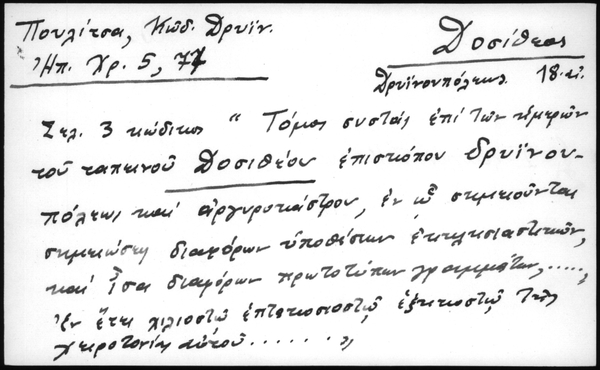 Πουλίτσα, Κώδ. Δρυϊν.
Ἠπ. Χρ. 5, 77
Δοσίθεος
Δρυϊνουπόλεως. 18. αἰ.
Σελ. 3 κώδικος " Τόμος συστάς ἐπί τῶν ἡμερῶν
τοῦ ταπεινοῦ Δοσιθέου ἐπισκόπου δρυϊνου-
πόλεως καί ἀργυροκάστρου, ἐν ᾧ σημειοῦνται
σημειώσεις διαφόρων ὑποθέσεων ἐκκλησιαστικῶν,
καί ἶσα διαφόρων πρωτοτύπων γραμμάτων, .....,
Ἐν ἔτει χιλιοστῷ ἑπτακοσιοστῷ ἑξηκοστῷ τῆς
χειροτονίας αὐτοῦ ....... "